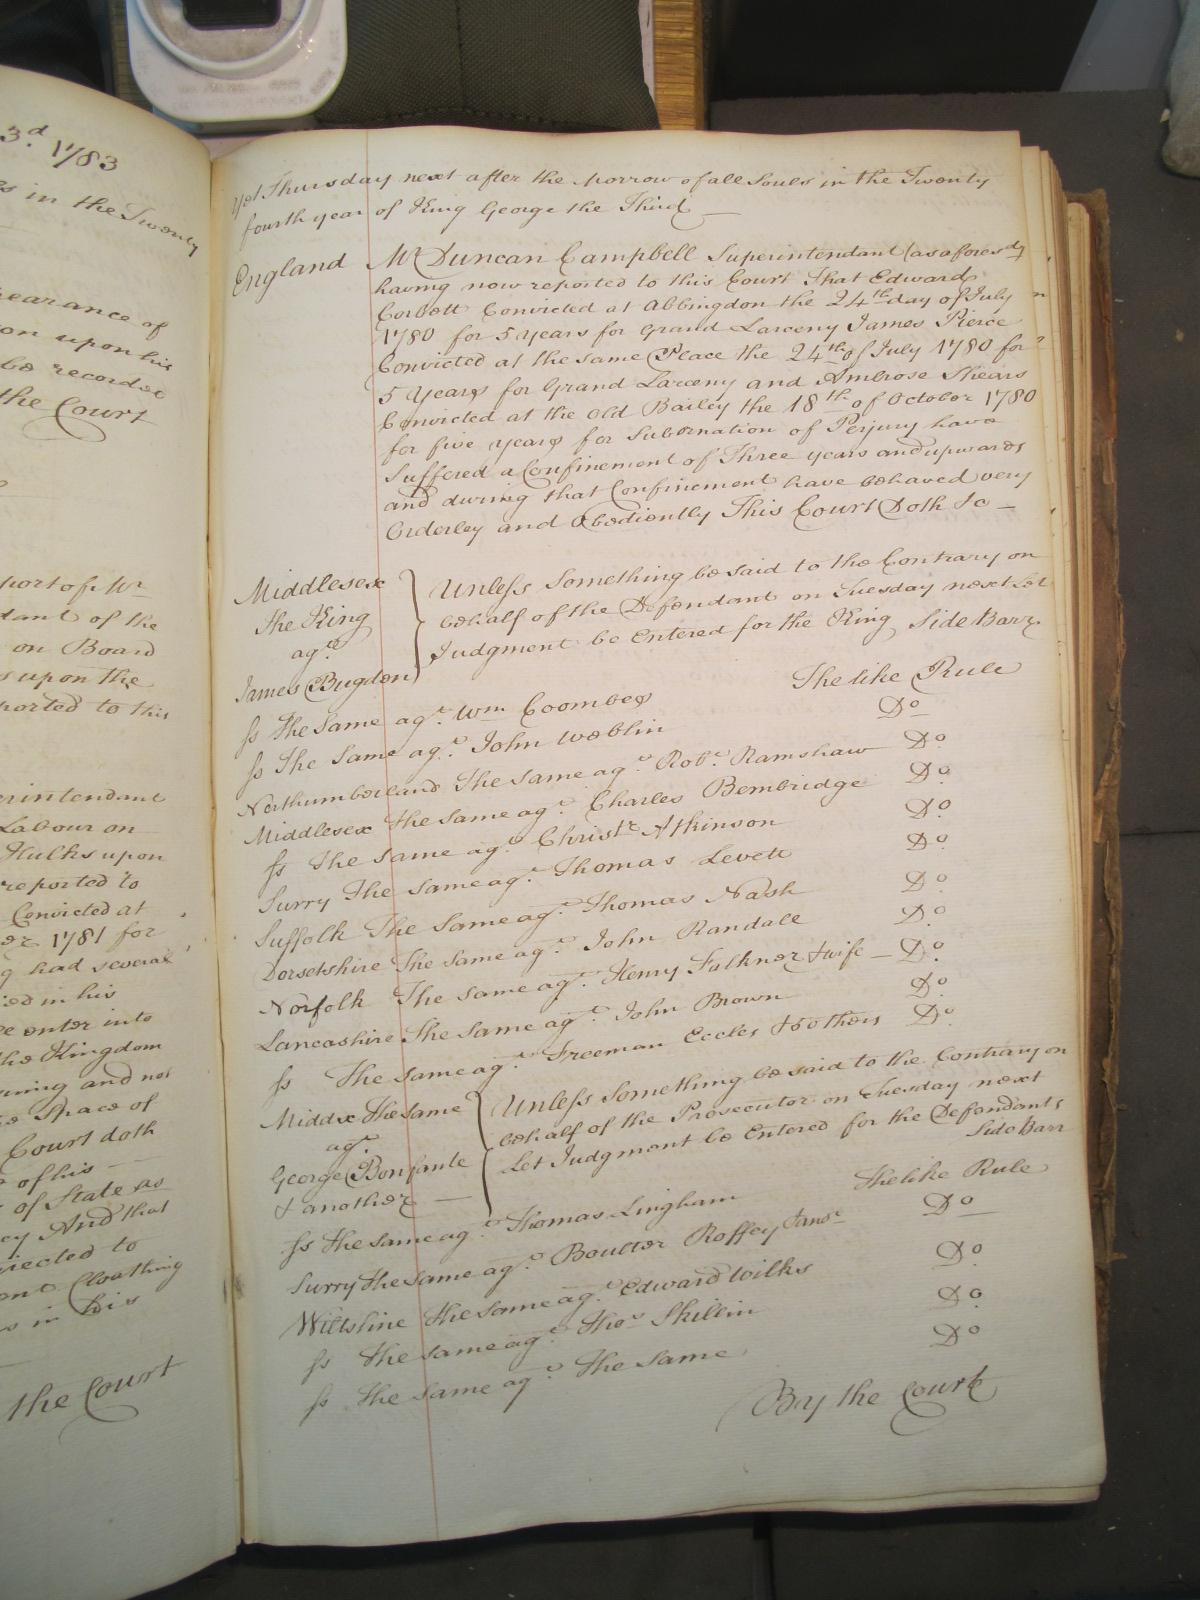 3d. 1783
es in the Twenty
pearance of
on upon his
be recorded
the Court
port of Mr
dant of the
on Board
s upon the
ported to this
erintendant
Labour on
Hulks upon
reported to
Convicted at
er 1781 for
g had several
ied in his
be enter into
the Kingdom
uning and not
e Space of
Court doth
of his
of State as
cy And that
jected to
ent Cloathing
s in his
the Court
Yet Thursday next after the Morrow of all Souls in the Twenty
fourth year of King George the Third
England Mr. Duncan Campbell Superintendant (as aforesd)
having now reported to this Court That Edward
Corbett Convicted at Abbingdon the 24th day of July
1780 for 5 Years for Grand Larceny James Pierce
Convicted at the same Place the 24th of July 1780 for
5 Years for Grand Larceny and Ambrose Shears
Convicted at the Old Bailey the 18th of October 1780
for five years for Subornation of Perjury have
Suffered a Confinement of Three years and upwards
and during that Confinement have behaved very
Orderley and Obediently This Court Doth &c
Middlesex Unless Something be said to the Contrary on
The King behalf of the Defendant on Tuesday next Let
agt. Judgment be Entered for the King Side Barr
James Bugdon
ss The Same agt. Wm Coombes The like Rule
ss The Same agt. John Weblin Do
Northumberland The Same agt. Robt. Ramshaw Do.
Middlesex The Same agt. Charles Bembridge Do.
ss The Same agt. Christr. Atkinson Do.
Surry The Same agt. Thomas Levett Do.
Suffolk The Same agt. Thomas Nash Do.
Dorsetshire The Same agt. John Randale Do.
Norfolk The Same agt. Henry Falkner & wife Do.
Lancashire The Same agt. John Brown Do.
ss The Same agt. Freeman Eccles & others Do.
Middx The Same Unless Something be said to the Contrary on
agt. behalf of the Prosecutor on Tuesday next
George Bonfante Let Judgment be Entered for the Defendants
& another Side Barr
ss The Same agt. Thomas Lingham The like Rule
Surry The Same agt. Boulter Roffey Do
Wiltshire The Same agt. Edward Wilks Do.
ss The Same agt. Thos. Skillin Do.
ss The Same agt. The Same Do
By the Court